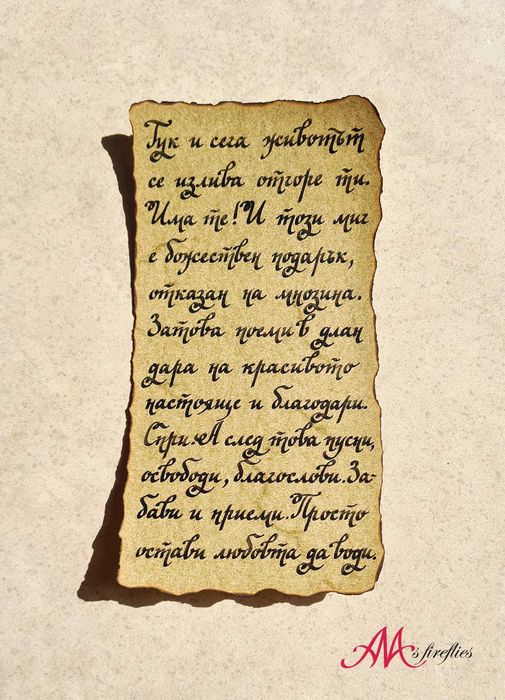 Тук и сега животът
се излива отгоре ти.
Има те! И този миг
е божествен подарък,
отказан на мнозина.
Затова поеми в длан
дара на красивото
настояще и благодари.
Спри. А след това пусни,
освободи, благослови. За-
бави и приеми. Просто
остави любовта да води.
AM's fireflies